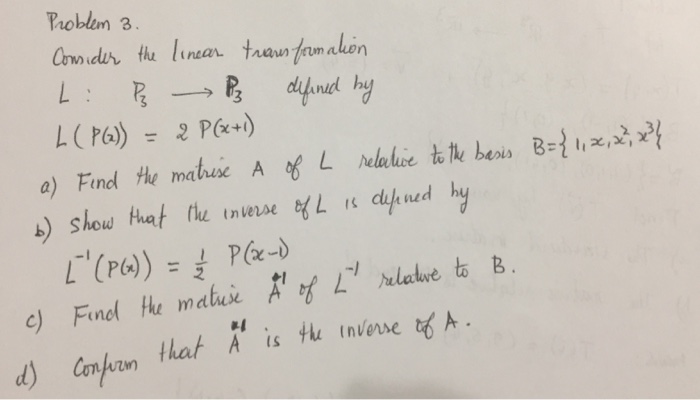 Problem 3.
Consider the linear transformation
L : P₃ → P₃ defined by
L(P(x)) = 2 P(x+1)
a) Find the matrix A of L relative to the basis B={1, x, x², x³}
b) show that the inverse of L is defined by
L⁻¹(P(x)) = 1/2 P(x-1)
c) Find the matrix A' of L⁻¹ relative to B.
d) Confirm that A is the inverse of A.